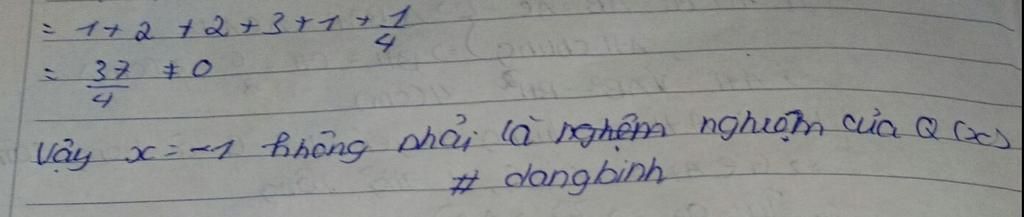 = 1 + 2 + 2 + 3 + 1 + 1/4
= 37/4 ≠ 0
Vậy x = -1 không phải là nghệm nghiệm của Q(x)
# dangbinh